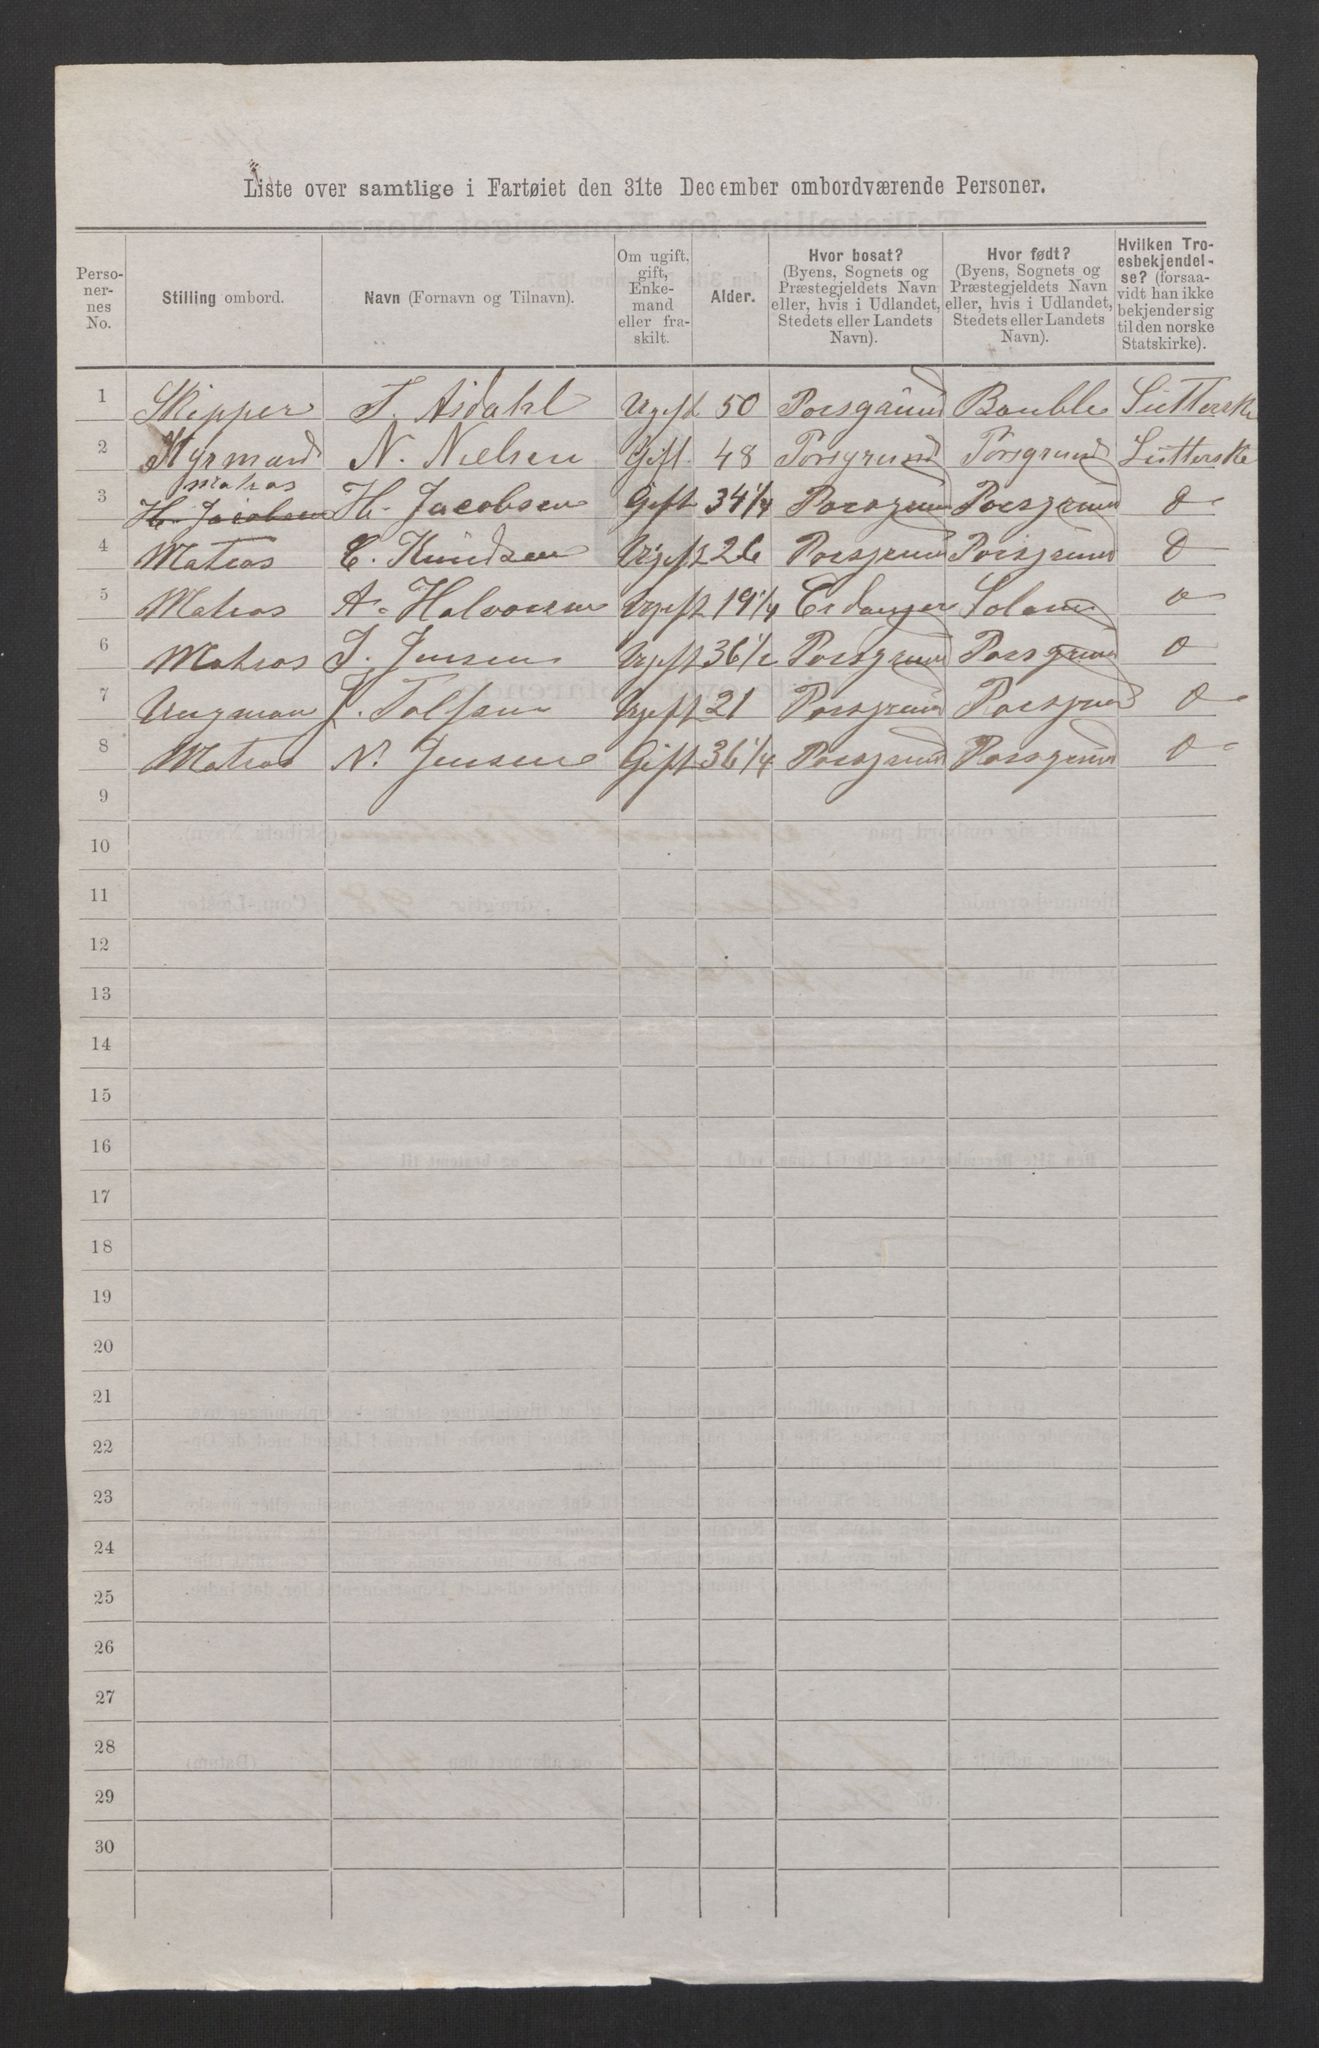 Liste over samtlige i Fartøiet den 31te December ombordværende Personer.
Perso-
ner-
nes
No.
Stilling ombord.
Navn (Fornavn og Tilnavn).
Om ugift,
gift,
Enke-
mand
eller fra-
skilt.
Alder.
Hvor bosat?
(Byens, Sognets og
Præstegjeldets Navn
eller, hvis i Udlandet,
Stedets eller Landets
Navn).
Hvor født?
(Byens, Sognets og
Præstegjeldets Navn
eller, hvis i Udlandet,
Stedets eller Landets
Navn).
Hvilken Tro-
esbekjendel-
se? (forsaa-
vidt han ikke
bekjender sig
til den norske
Statskirke).
1 Skipper T. Asdahl Ugift 50 Porsgrund Bamble Lutterske
2 Styrmand N. Nielsen Gift 48 Porsgrund Porsgrund Lutterske
matros
3 H. Jacobsen H. Jacobsen Gift 34 1/4 Porsgrund Porsgrund D
4 Matros C. Knudsen Ugift 26 Porsgrund Porsgrund D
5 Matros A. Halvorsen Ugift 19 1/4 Eidanger Solum D
6 Matros J. Jensen Ugift 36 1/2 Porsgrund Porsgrund D
7 Ungman J. Tolfsen Ugift 21 Porsgrund Porsgrund D
8 Matros N. Jensen Gift 36 1/4 Porsgrund Porsgrund D
9
10
11
12
13
14
15
16
17
18
19
20
21
22
23
24
25
26
27
28
29
30